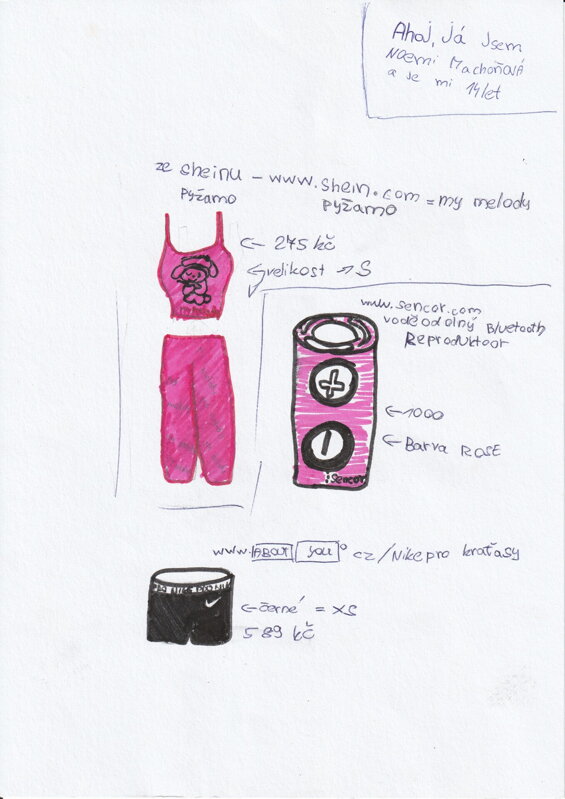 Ahoj, já jsem
NOEMI MachoňOVÁ
a je mi 14 let
ze sheinu - www.shein.com = my melody
Pyžamo
Pyžamo
← 275 kč
velikost → S
www.sencor.com
voděodolný Bluetooth
Reproduktor
+
← 1000
← Barva ROSE
sencor
www. ABOUT YOU ° cz/Nike pro kraťasy
NIKE PRO
← černé = XS
589 kč